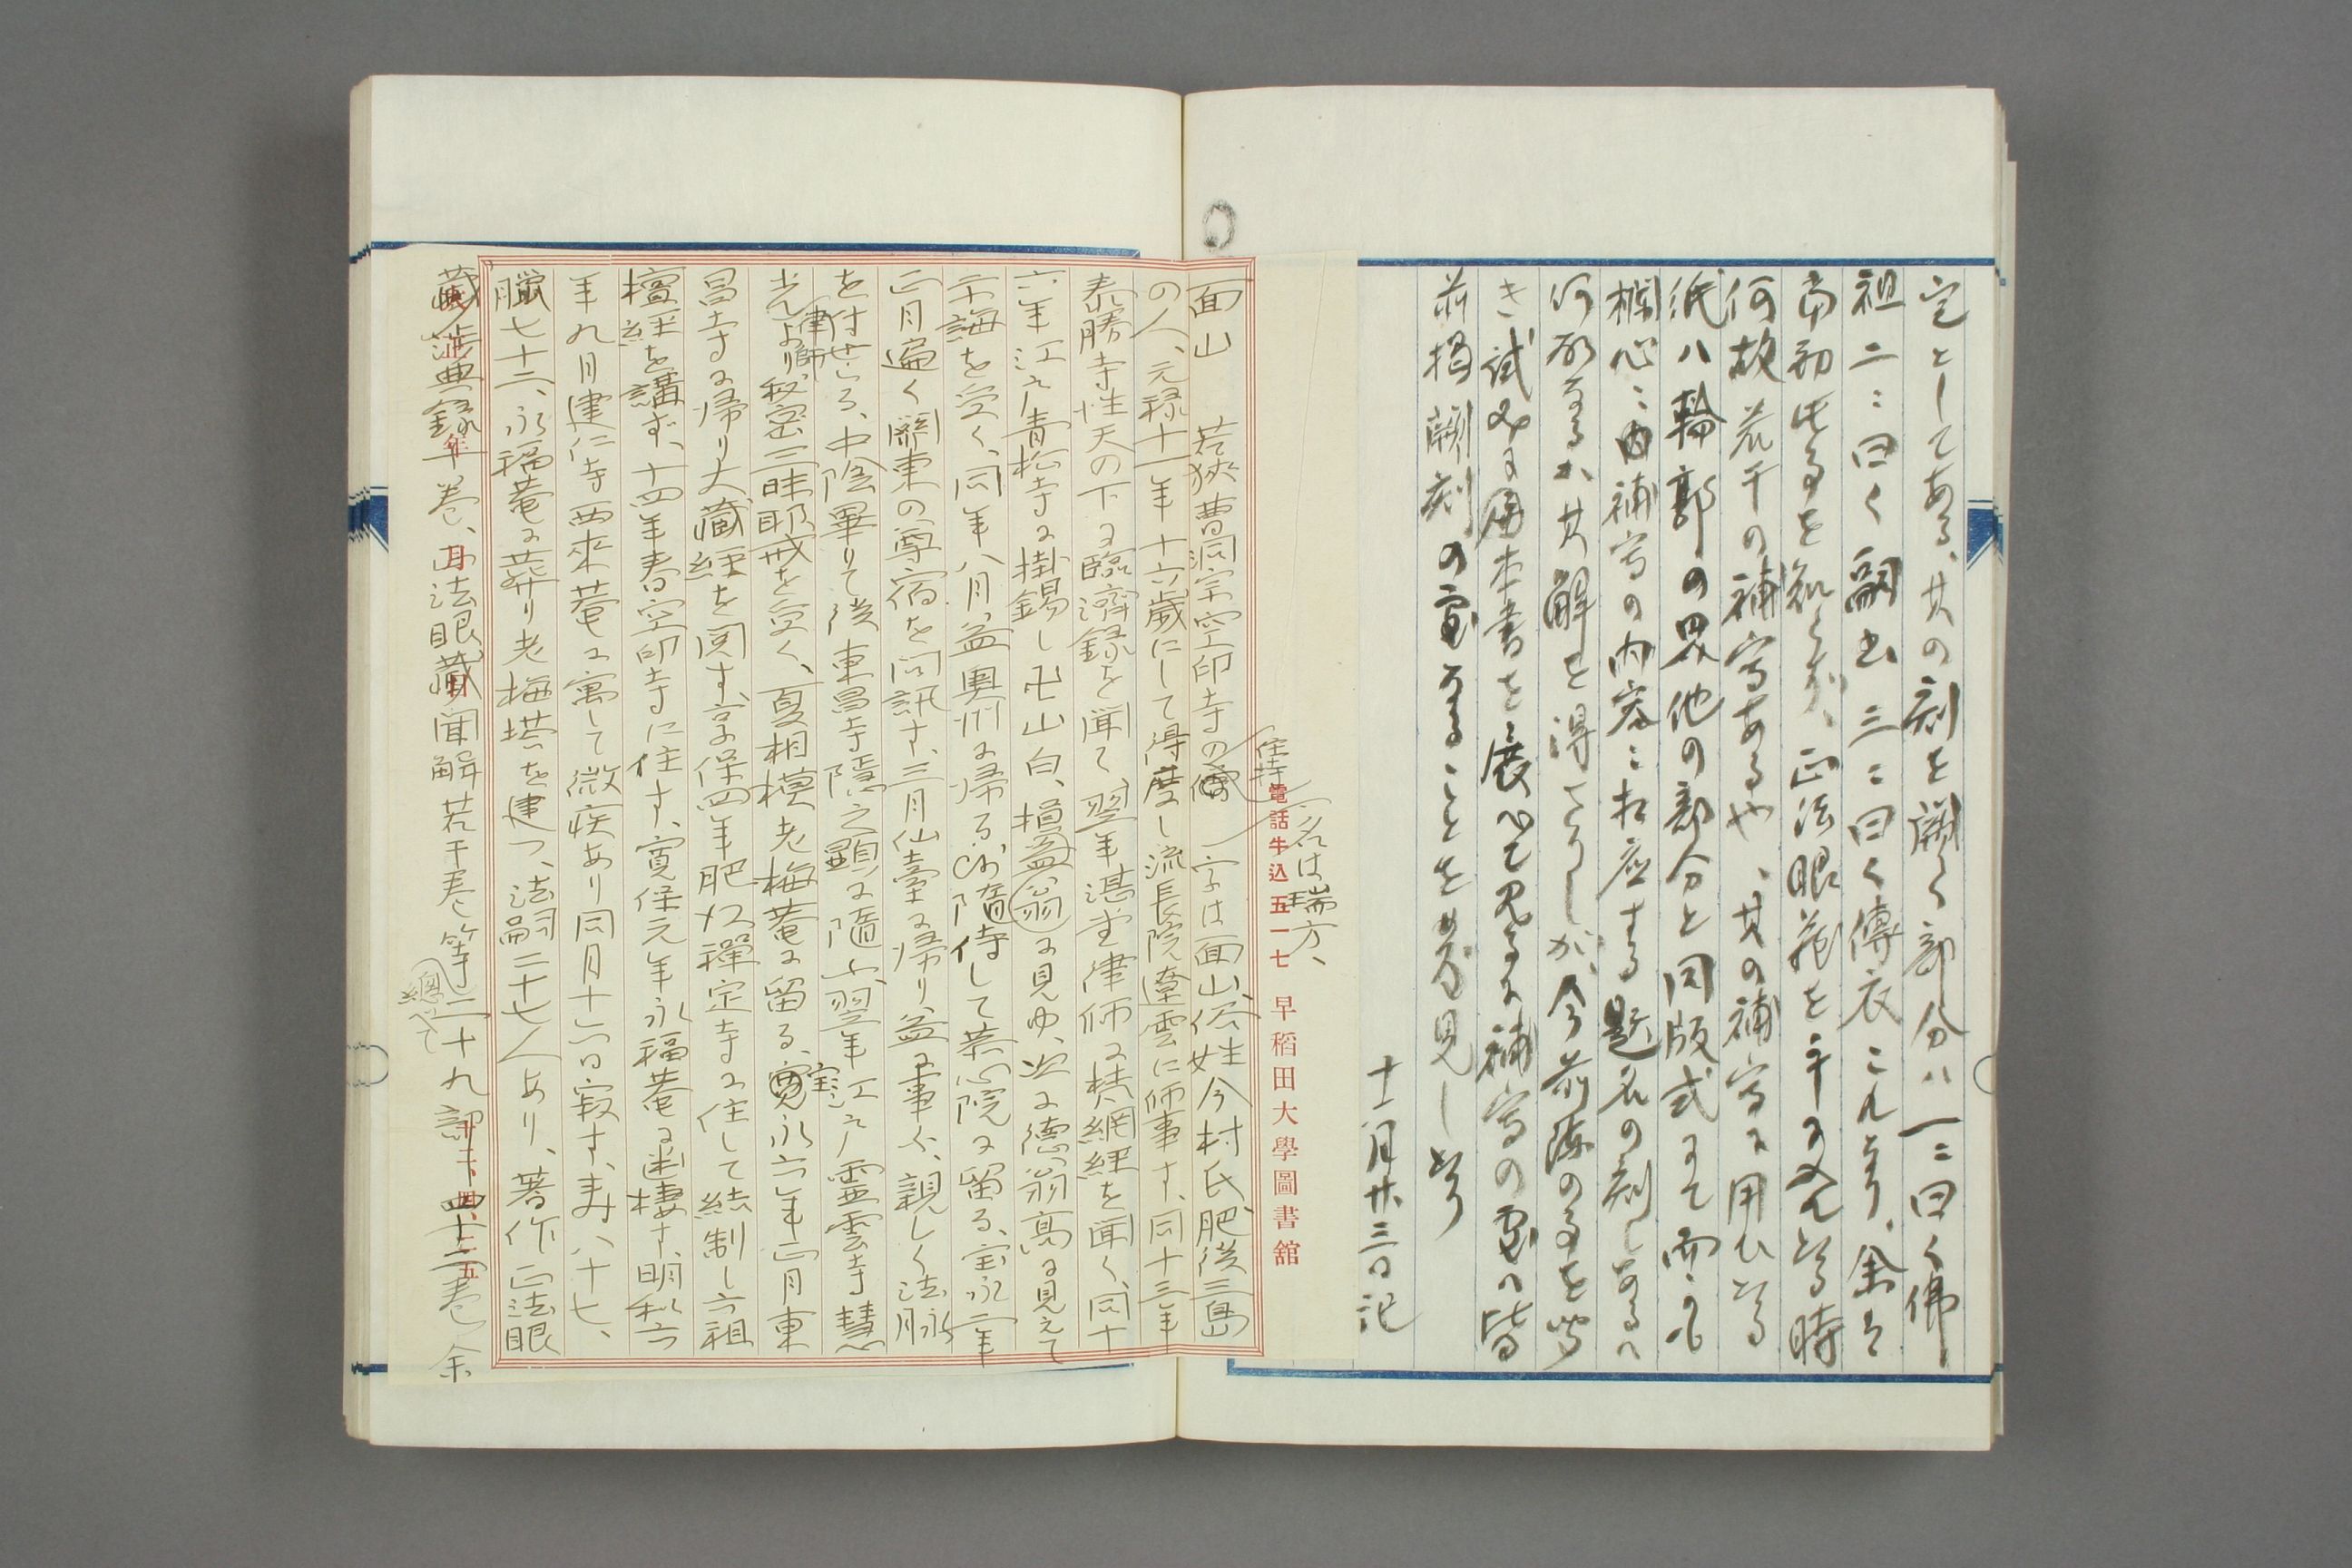 定としてある、其の刻を闕く部分ハ一ニ曰く佛
祖二ニ曰く嗣書三ニ曰く傳衣これなり、余は
当初此るを知らず、正法眼蔵を手に入れる時
何故若干の補寫あるや、其の補寫に用ひる
紙ハ輪郭の界他の部分と同版式にて而かも
欄心ニ内補寫の内容ニ相應する題名の刻しあるハ
何故なるか其解を得さりしが、今前陳のるを
き試みに本書を
前掲闕刻の處なることを發見し
十一月廿三日記
一名は瑞方、
住持
面山 若狹曹洞宗空印寺の 一字は面山、俗姓今村氏、肥後三島
の人、元禄十一年十六歳にして得度し流長院遼雲に師事す、同十三年
泰勝寺性天の下に臨濟録を聞て、翌年湛堂律師に梵網経を聞く、同十
六年江戸青松寺に掛錫し卍山白、損益翁に見ゆ、次に徳翁高に見えて
示誨を受く、同年八月、益奥州に帰る、乃隨侍して泰心院に留る、宝永二年
正月遍く關東の尊宿を問訊す、三月仙臺に帰り、益に事へ、親しく法脉
を付せらる、中陰畢りて後東昌寺隱之顯に隨ふ、翌年江戸靈雲寺慧
光律師より秘密三昧耶戒を受く、夏相模老梅菴に留る、宝永六年正月東
昌寺に帰り大藏経を閲す、享保四年肥後禪定寺に住して結制し六祖
檀経を講ず、十四年春空印寺に住す、寛保元年永福菴に退棲す、明和六
年九月建仁寺西來菴に寓して微疾あり同月十六日寂す、寿八十七、
臘七十二、永福菴に葬り老梅塔を建つ、法嗣二十七人あり、著作正法眼
藏渉典録 巻、正法眼藏聞解若干巻等總べて二十九部 巻余
電話牛込五一七 早稻田大學圖書館